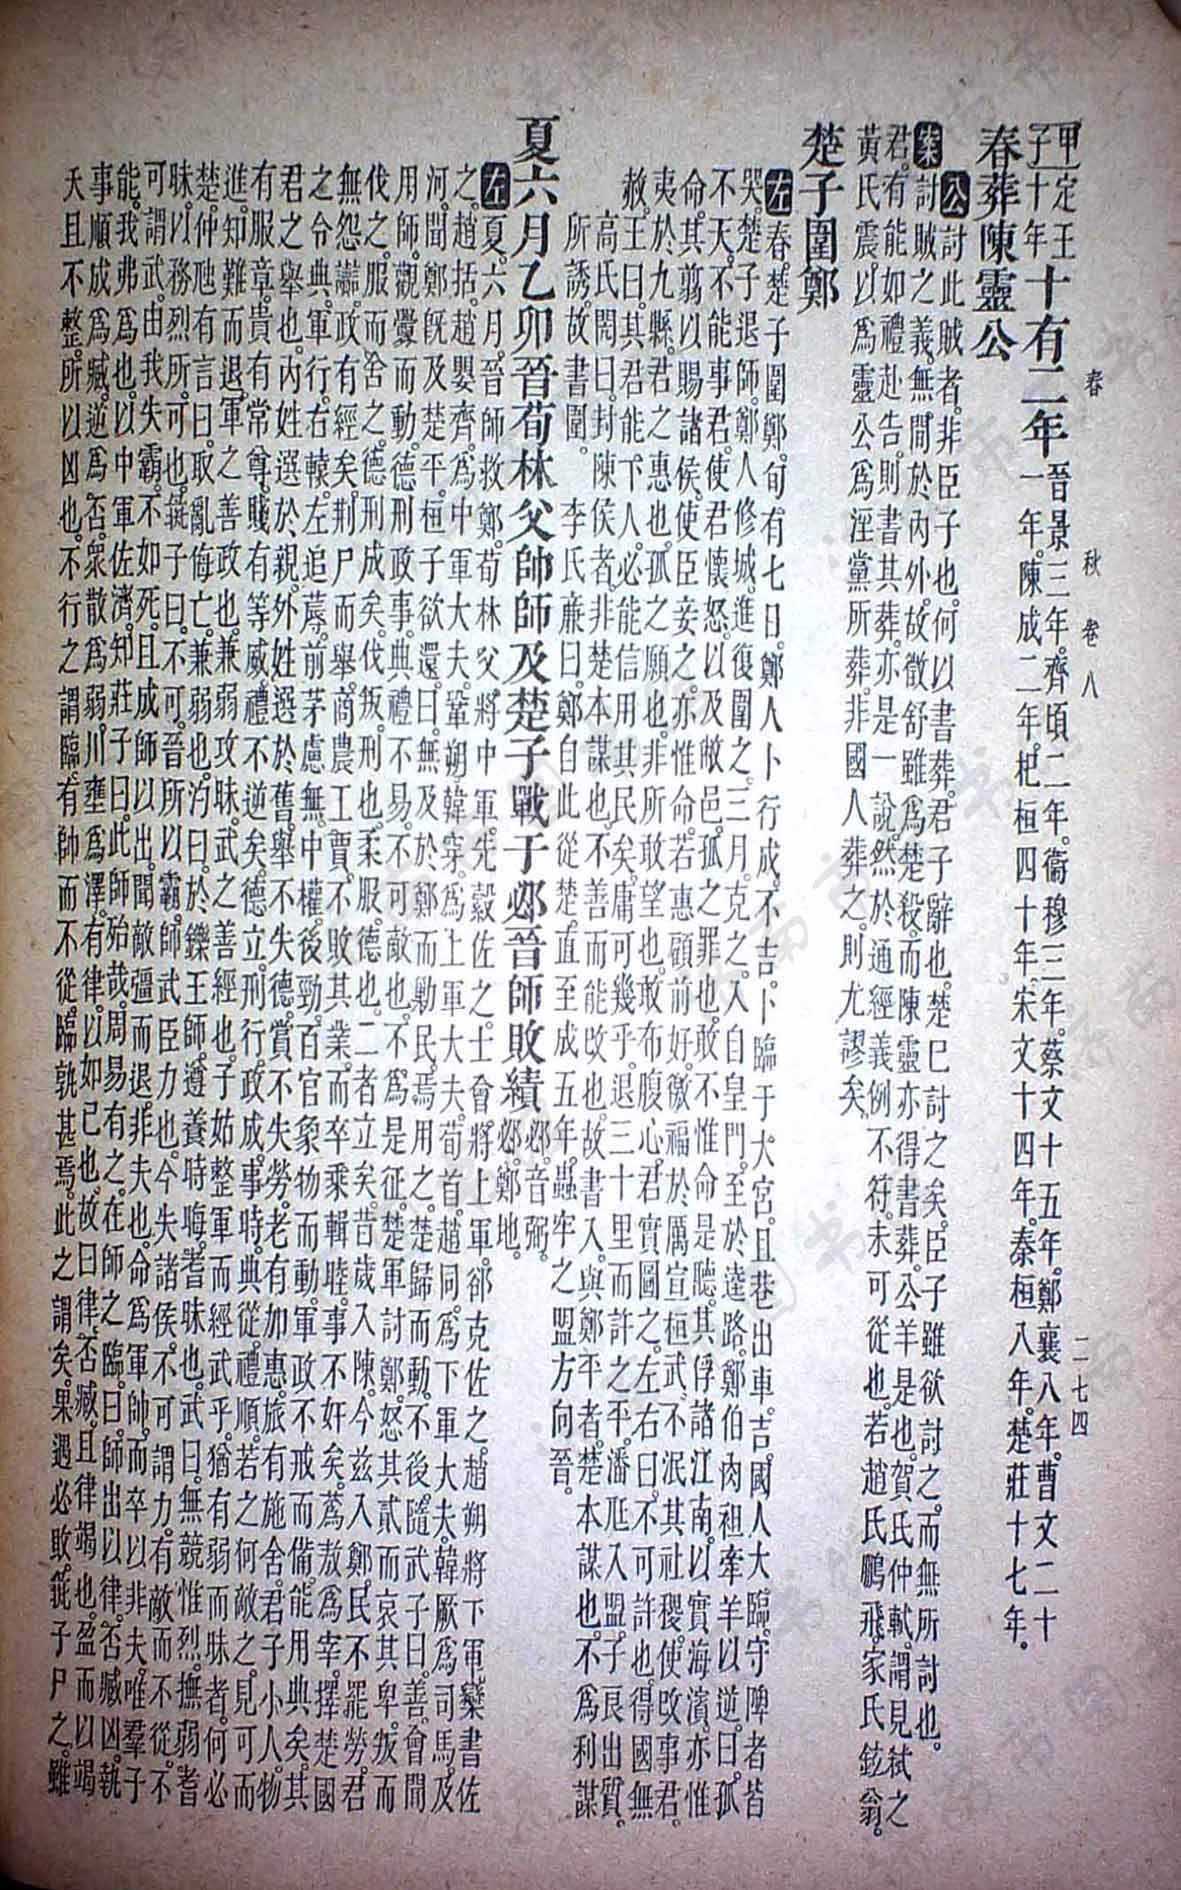 春　秋　卷八　二七四
甲子
定王十年
十有二年
晉景三年。齊頃二年。衞穆三年。蔡文十五年。鄭襄八年。曹文二十
一年。陳成二年。杞桓四十年。宋文十四年。秦桓八年。楚莊十七年。
春葬陳靈公
公討此賊者。非臣子也。何以書葬。君子辭也。楚已討之矣。臣子雖欲討之。而無所討也。
案討賊之義。無間於內外。故徵舒雖爲楚殺。而陳靈亦得書葬。公羊是也。賀氏仲軾。謂見弒之
君。有能如禮赴告。則書其葬。亦是一說。然於通經義例不符。未可從也。若趙氏鵬飛。家氏鉉翁。
黃氏震。以爲靈公爲淫黨所葬。非國人葬之。則尤謬矣。
楚子圍鄭
左春。楚子圍鄭。旬有七日。鄭人卜行成。不吉。卜臨于大宮。且巷出車。吉。國人大臨。守陴者皆
哭。楚子退師。鄭人修城。進復圍之。三月。克之。入自皇門。至於逵路。鄭伯肉袒牽羊以逆。曰。孤
不天。不能事君。使君懷怒。以及敝邑。孤之罪也。敢不惟命是聽。其俘諸江南。以實海濱。亦惟
命。其翦以賜諸侯。使臣妾之。亦惟命。若惠顧前好。徼福於厲宣桓武。不泯其社稷。使改事君。
夷於九縣。君之惠也。孤之願也。非所敢望也。敢布腹心。君實圖之。左右曰。不可許也。得國無
赦。王曰。其君能下人。必能信用其民矣。庸可幾乎。退三十里。而許之平。潘尫入盟。子良出質。
高氏閌曰。封陳侯者。非楚本謀也。不善而能改也。故書入。與鄭平者。楚本謀也。不爲利謀
所誘。故書圍。　李氏廉曰。鄭自此從楚。直至成五年。蟲牢之盟方向晉。
夏六月乙卯晉荀林父帥師及楚子戰于邲晉師敗績
邲音弼。
邲。鄭地。
左夏。六月。晉師救鄭。荀林父將中軍。先縠佐之。士會將上軍。郤克佐之。趙朔將下軍。欒書佐
之。趙括。趙嬰齊。爲中軍大夫。鞏朔。韓穿。爲上軍大夫。荀首。趙同。爲下軍大夫。韓厥爲司馬。及
河。聞鄭旣及楚平。桓子欲還。曰。無及於鄭而勦民。焉用之。楚歸而動。不後。隨武子曰。善。會聞
用師。觀釁而動。德刑政事。典禮不易。不可敵也。不爲是征。楚軍討鄭。怒其貳而哀其卑。叛而
伐之。服而舍之。德刑成矣。伐叛。刑也。柔服。德也。二者立矣。昔歲入陳。今兹入鄭。民不罷勞。君
無怨讟。政有經矣。荆尸而舉。商農工賈。不敗其業。而卒乘輯睦。事不奸矣。蔿敖爲宰。擇楚國
之令典。軍行。右轅。左追蓐。前茅慮無。中權。後勁。百官象物而動。軍政不戒而備。能用典矣。其
君之舉也。內姓選於親。外姓選於舊。舉不失德。賞不失勞。老有加惠。旅有施舍。君子小人。物
有服章。貴有常尊。賤有等威。禮不逆矣。德立。刑行。政成。事時。典從。禮順。若之何敵之。見可而
進。知難而退。軍之善政也。兼弱攻昧。武之善經也。子姑整軍而經武乎。猶有弱而昧者。何必
楚。仲虺有言曰。取亂侮亡。兼弱也。汋曰。於鑠王師。遵養時晦。耆昧也。武曰。無競惟烈。撫弱耆
昧。以務烈所。可也。彘子曰。不可。晉所以霸。師武臣力也。今失諸侯。不可謂力。有敵而不從。不
可謂武。由我失霸。不如死。且成師以出。聞敵彊而退。非夫也。命爲軍帥。而卒以非夫。唯羣子
能。我弗爲也。以中軍佐濟。知莊子曰。此師殆哉。周易有之。在師之臨。曰。師出以律。否臧凶。執
事順成爲臧。逆爲否。衆散爲弱。川壅爲澤。有律。以如己也。故曰律。否臧。且律竭也。盈而以竭
夭且不整。所以凶也。不行之謂臨。有帥而不從。臨孰甚焉。此之謂矣。果遇必敗。彘子尸之。雖